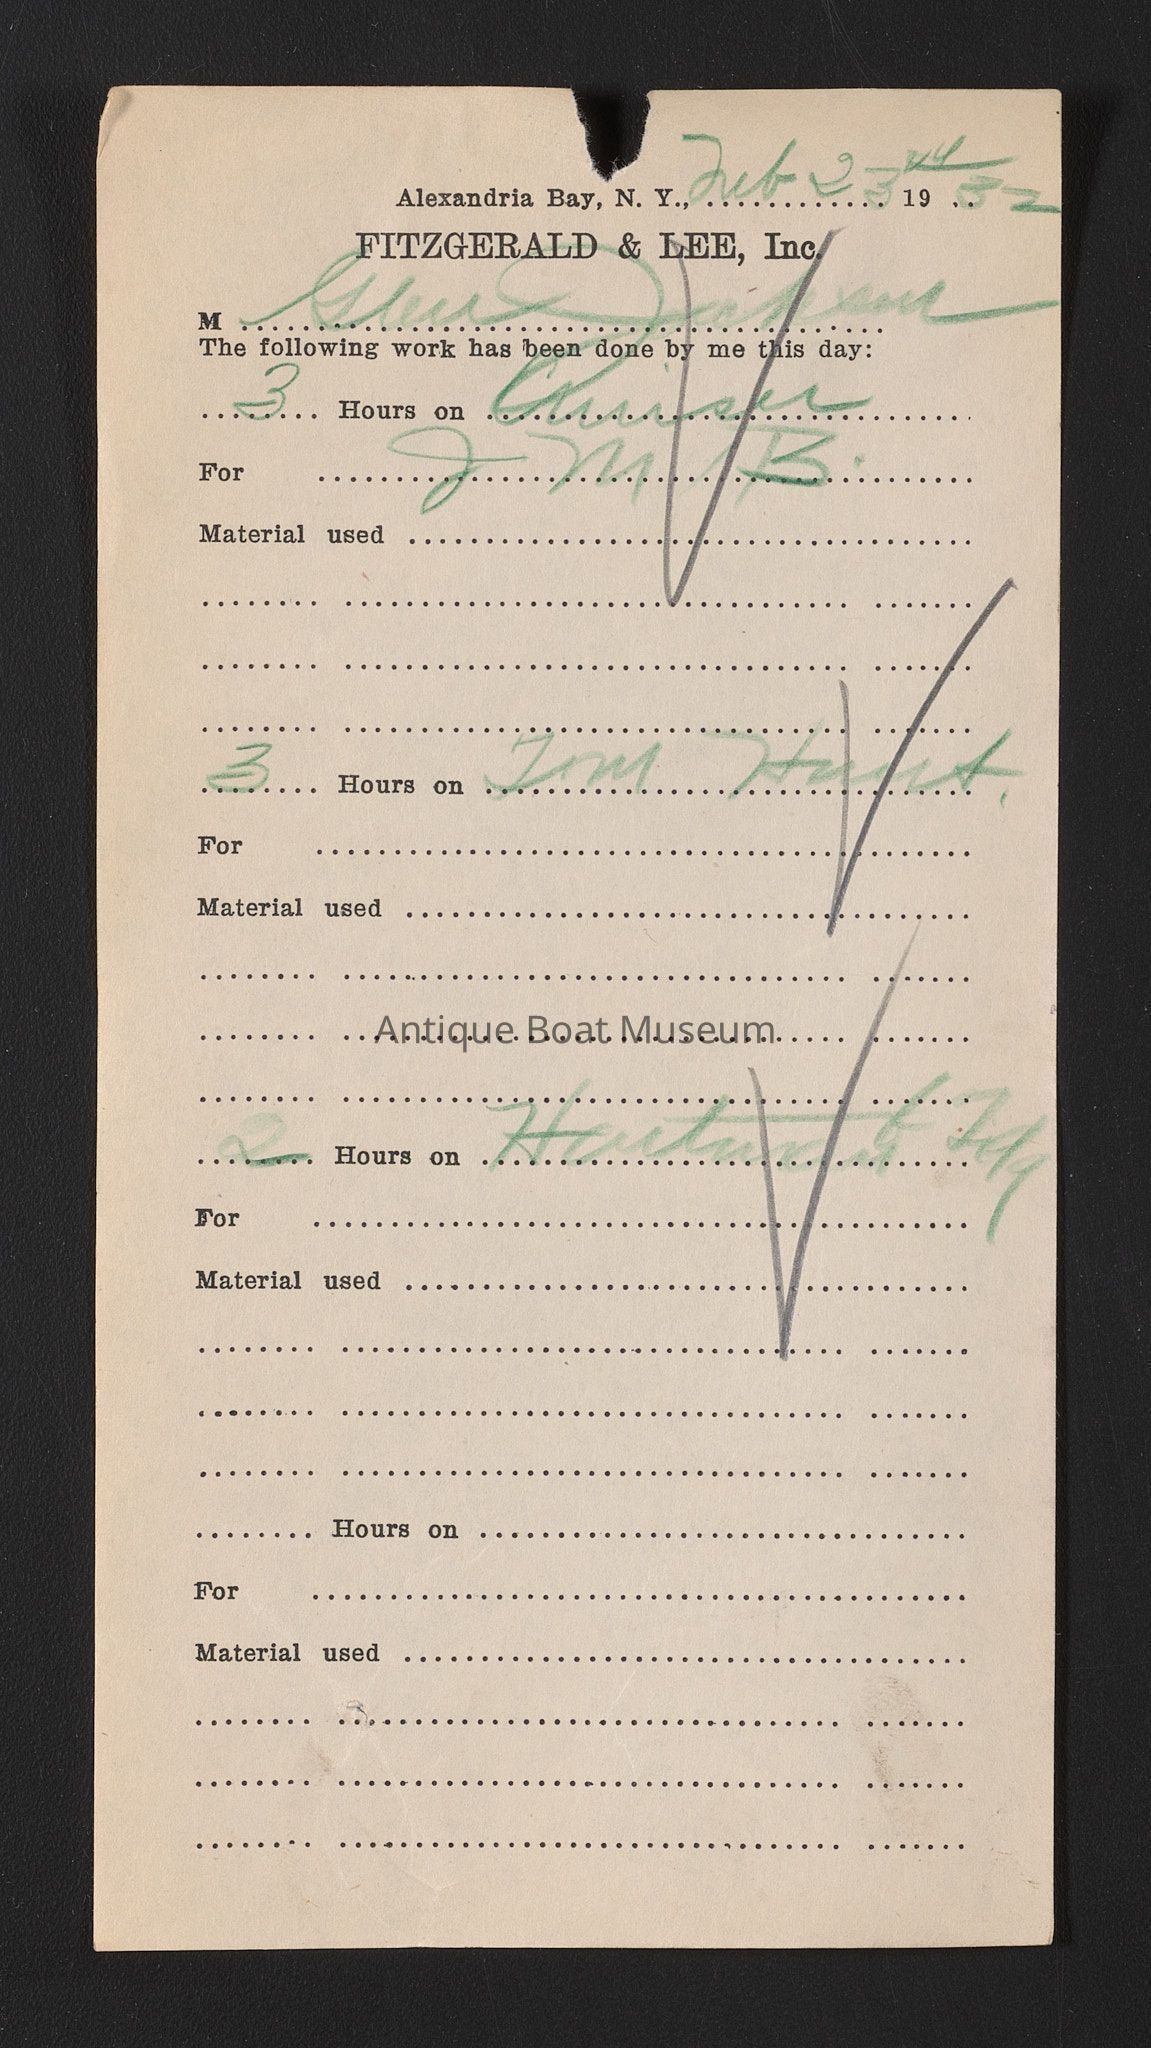 Alexandria Bay, N. Y., Feb 23rd 19 32
FITZGERALD & LEE, Inc.
M Glen Jackson
The following work has been done by me this day:
3 Hours on Cruiser
For J M B.
Material used
3 Hours on Tom Hunt.
For
Material used
Antique Boat Museum
2 Hours on
For
Material used
Hours on
For
Material used